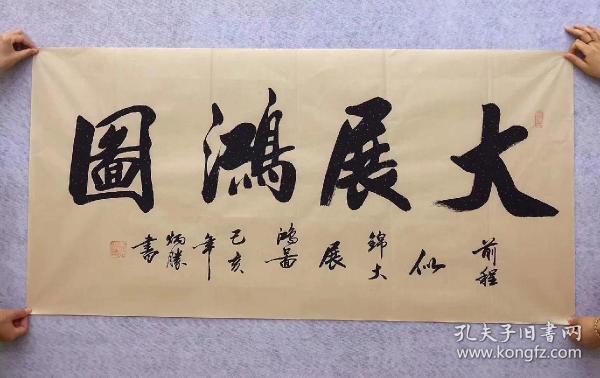 大展鴻圖
前程似錦大展鴻圖己亥年炳勝書
孔夫子旧书网
www.kongfz.com